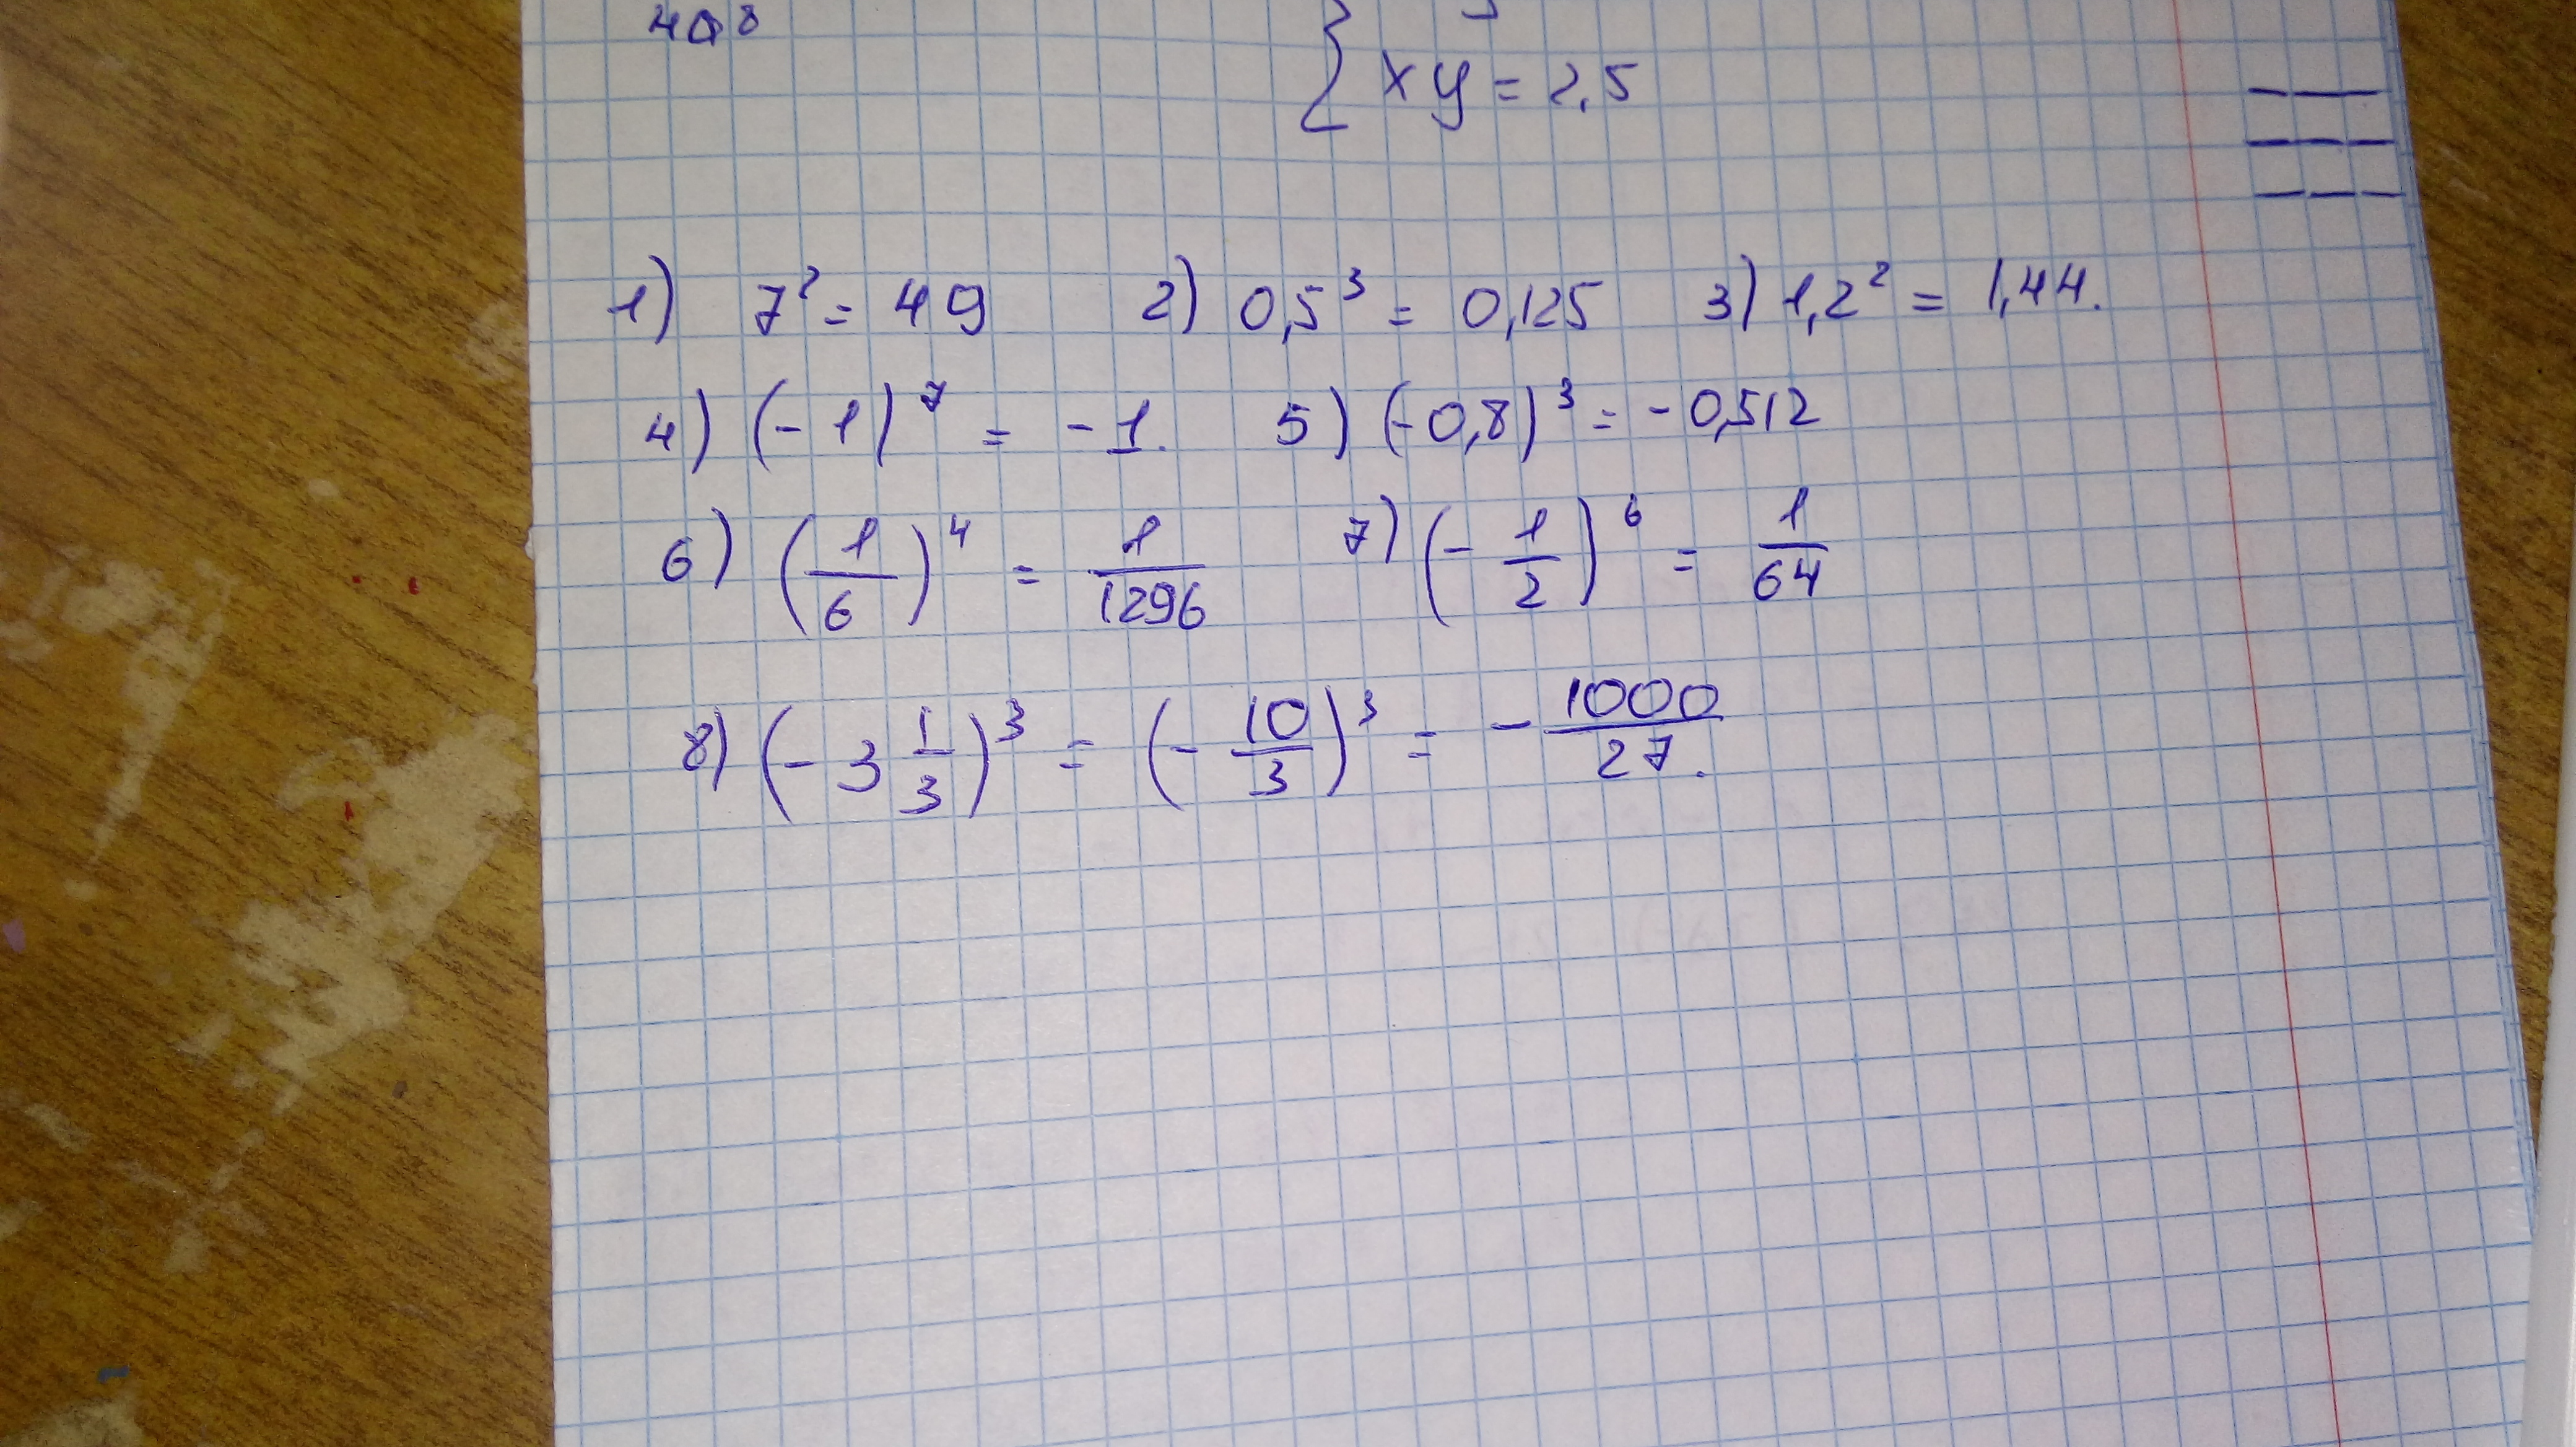 4a⁸
{ xy = 2,5
1) 7² = 49 2) 0,5³ = 0,125 3) 1,2² = 1,44.
4) (-1)⁷ = -1. 5) (-0,8)³ = -0,512
6) (1/6)⁴ = 1/1296 7) (-1/2)⁶ = 1/64
8) (-3 1/3)³ = (-10/3)³ = -1000/27.